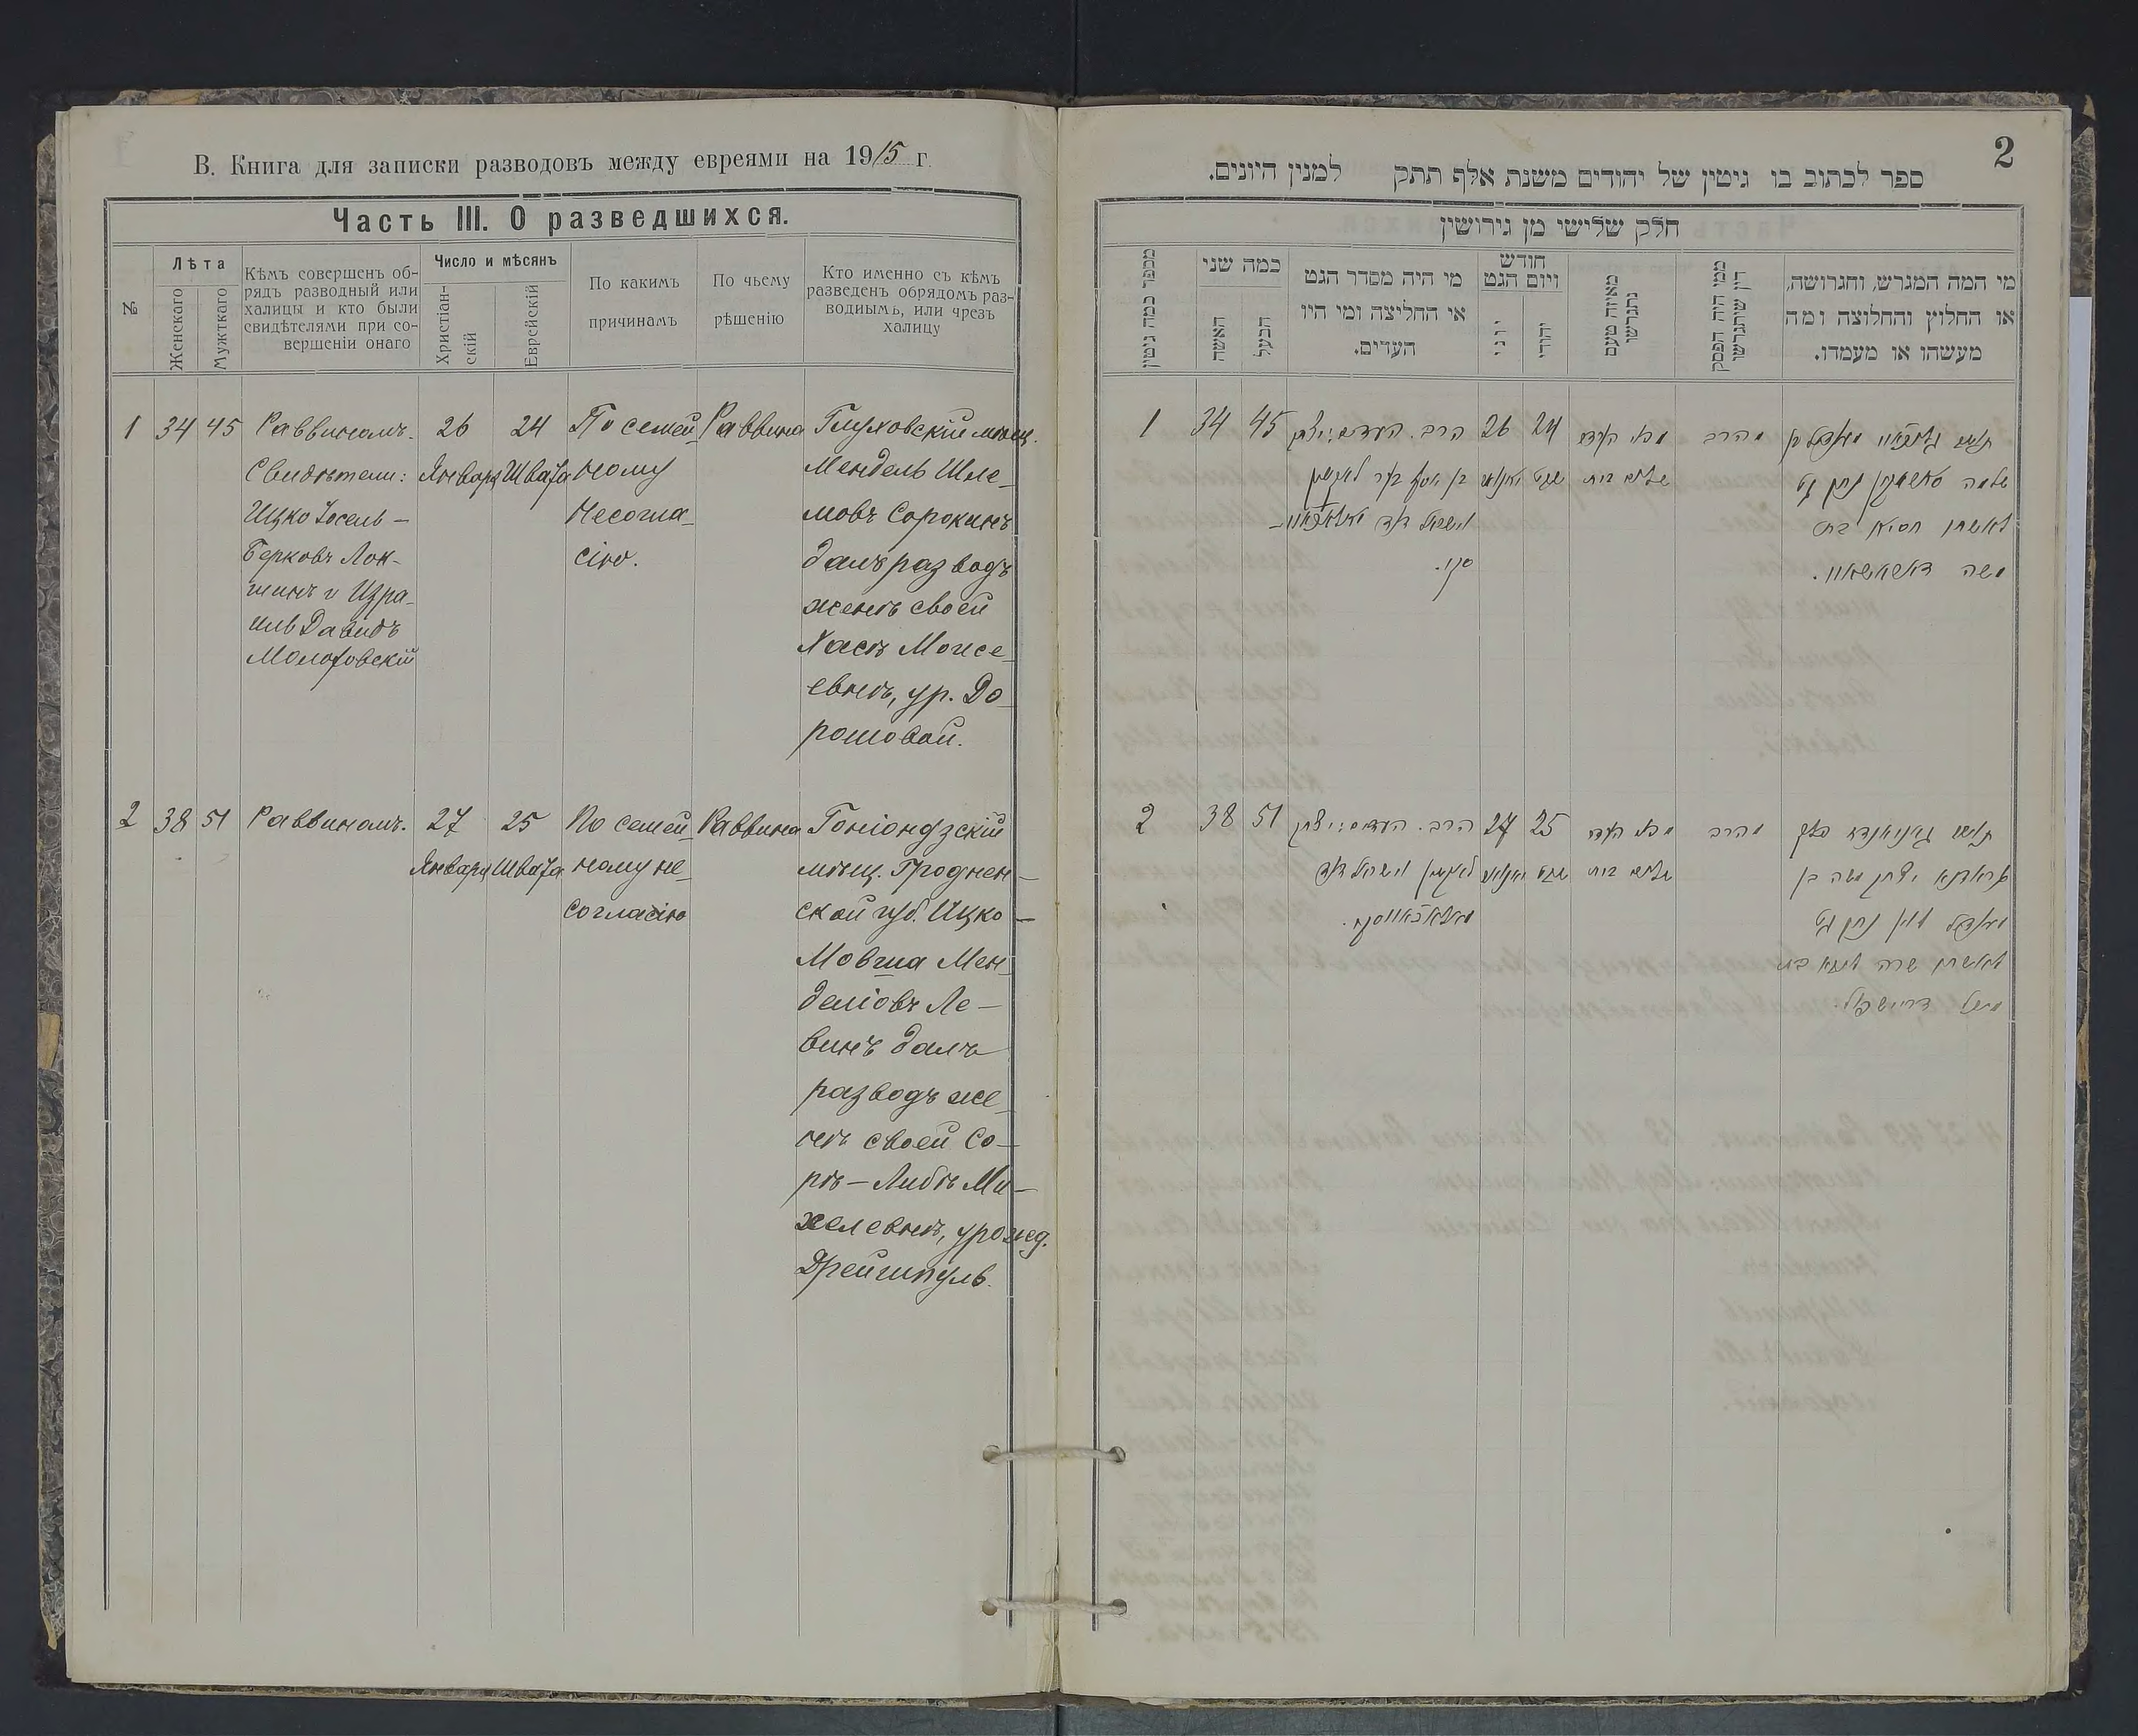 В. Книга для записки разводовъ между евреями на 1915 г.
Часть III. О разведшихся.
№
Лѣта
Женскаго
Мужткаго
Кѣмъ совершенъ об-
рядъ разводный или
халицы и кто были
свидѣтелями при со-
вершеніи онаго
Число и мѣсянъ
Христіан-
скій
Еврейскій
По какимъ
причинамъ
По чьему
рѣшенію
Кто именно съ кѣмъ
разведенъ обрядомъ раз-
водиымъ, или чрезъ
халицу
1
34
45
Раввиномъ.
Свидѣтели:
Ицко Іосель-
Берковъ Лок-
шинъ и Изра-
иль Давидъ
Молотовскій
26
Января
24
Швата
По семей
ному
несогла-
сію.
Раввина
Глуховскій мѣщ.
Мендель Шле-
мовъ Сорокинъ
далъ разводъ
женѣ своей
Хасѣ Моисе-
евнѣ, ур. До-
рошовой.
2
38
51
Раввиномъ.
27
Января
25
Швата
По семей
ному не-
согласію
Раввина
Гоніондзскій
мѣщ. Гроднен-
ской губ. Ицко-
Мовша Мен-
деліовъ Ле-
винъ далъ
разводъ же-
нѣ своей Со-
рѣ-Либѣ Ми-
хелевнѣ, урожд.
Дрейшпуль.
2
ספר לכתוב בו גיטין של יהודים משנת אלף תתק למנין היונים.
חלק שלישי מן גירושין
מספר כמה גיטין
כמה שני
האשה
הבעל
מי היה מסדר הגט
או החליצה ומי היו
העדים.
חודש
ויום הגט
יוני
יהודי
מאיזה טעם
נתגרשו
ממי היה הפסק
דין שיתגרשו
מי המה המגרש, והגרושה,
או החלוץ והחלוצה ומה
מעשהו או מעמדו.
1
34
45
הרב. העדים: יצחק
26
24
שבט
שלום בית
הרב
שלמה
נתן גט
לאשתו חסיא בת
משה
2
38
51
הרב. העדים: יצחק
27
25
שבט
שלום בית
הרב
יצחק משה בן
נתן גט
לאשתו שרה ליבא בת